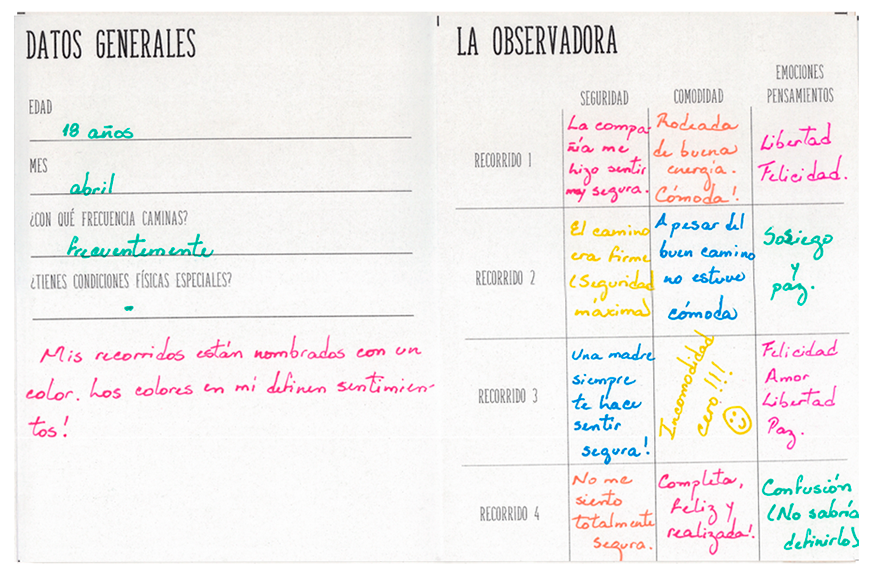 DATOS GENERALES
EDAD
18 años
MES
abril
¿CON QUÉ FRECUENCIA CAMINAS?
frecuentemente
¿TIENES CONDICIONES FÍSICAS ESPECIALES?
-
Mis recorridos están nombrados con un
color. Los colores en mi definen sentimien-
tos!
LA OBSERVADORA
SEGURIDAD
COMODIDAD
EMOCIONES
PENSAMIENTOS
RECORRIDO 1
La compa
ñía me
hizo sentir
muy segura.
Rodeada
de buena
energía.
Cómoda!
Libertad
Felicidad.
RECORRIDO 2
El camino
era firme
(Seguridad
máxima)
A pesar del
buen camino
no estuve
cómoda
Sosiego
y
paz.
RECORRIDO 3
Una madre
siempre
te hace
sentir
segura!
Incomodidad
cero!!!
Felicidad
Amor
Libertad
Paz.
RECORRIDO 4
No me
siento
totalmente
segura.
Completa,
feliz y
realizada!.
Confusión
(No sabría
definirlo)